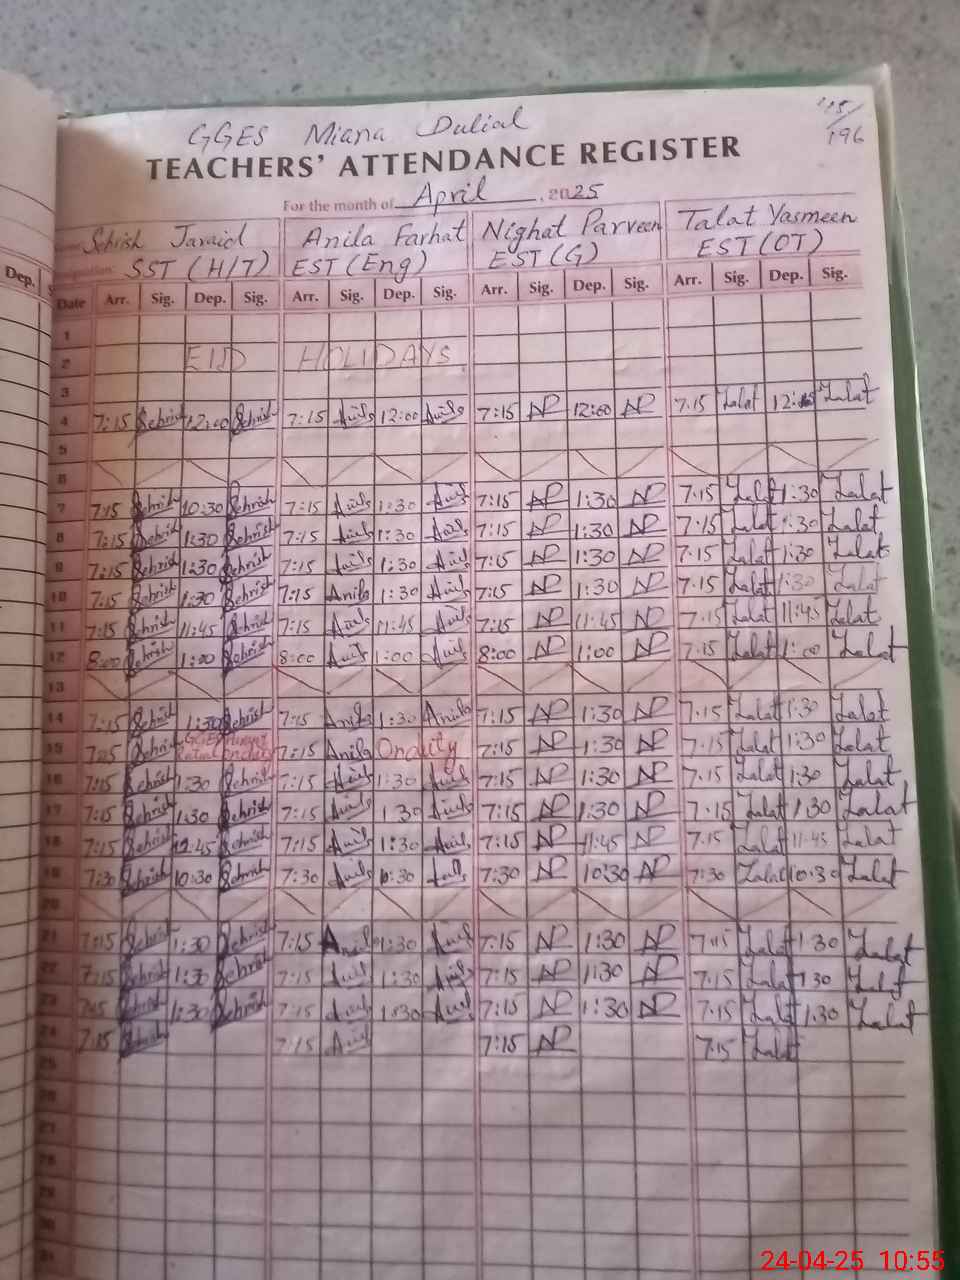 '15/
196
GGES Miana Dulial
TEACHERS' ATTENDANCE REGISTER
For the month of April, 2025
Sehrish Javaid Anila Farhat Nighat Parveen Talat Yasmeen
SST (H/T) EST (Eng) EST (G) EST (OT)
Dep.
Date Arr. Sig. Dep. Sig. Arr. Sig. Dep. Sig. Arr. Sig. Dep. Sig. Arr. Sig. Dep. Sig.
1
2 EID HOLIDAYS
3
4 7:15 Sehrish 12:00 Sehrish 7:15 Anila 12:00 Anila 7:15 NP 12:00 NP 7:15 Talat Talat
5
6
7 7:15 Sehrish 10:30 Sehrish 7:15 Anila 1:30 Anila 7:15 NP 1:30 NP 7:15 Talat 1:30 Talat
8 7:15 Sehrish 1:30 Sehrish 7:15 Anila 1:30 Anila 7:15 NP 1:30 NP 7:15 Talat 1:30 Talat
9 7:15 Sehrish 1:30 Sehrish 7:15 Anila 1:30 Anila 7:15 NP 1:30 NP 7:15 Talat 1:30 Talat
10 7:15 Sehrish 1:30 Sehrish 7:15 Anila 1:30 Anila 7:15 NP 1:30 NP 7:15 Talat 1:30 Talat
11 7:15 Sehrish 11:45 Sehrish 7:15 Anila 11:45 Anila 7:15 NP 11:45 NP 7:15 Talat 11:45 Talat
12 8:00 Sehrish 1:00 Sehrish 8:00 Anila 1:00 Anila 8:00 NP 1:00 NP 7:15 Talat 1:00 Talat
13
14 7:15 Sehrish 1:30 Sehrish 7:15 Anila 1:30 Anila 7:15 NP 1:30 NP 7:15 Talat 1:30 Talat
15 Sehrish On duty 7:15 Anila On duty 7:15 NP 1:30 NP 7:15 Talat 1:30 Talat
16 7:15 Sehrish 1:30 Sehrish 7:15 Anila 1:30 Anila 7:15 NP 1:30 NP 7:15 Talat 1:30 Talat
17 7:15 Sehrish 1:30 Sehrish 7:15 Anila 1:30 Anila 7:15 NP 1:30 NP 7:15 Talat 1:30 Talat
18 7:15 Sehrish 12:45 Sehrish 7:15 Anila 1:30 Anila 7:15 NP 11:45 NP 7:15 Talat 11:45 Talat
19 7:30 Sehrish 10:30 Sehrish 7:30 Anila 10:30 Anila 7:30 NP 10:30 NP 7:30 Talat 10:30 Talat
20
21 7:15 Sehrish 1:30 Sehrish 7:15 Anila 1:30 Anila 7:15 NP 1:30 NP 7:15 Talat 1:30 Talat
22 7:15 Sehrish 1:30 Sehrish 7:15 Anila 1:30 Anila 7:15 NP 1:30 NP 7:15 Talat 1:30 Talat
23 7:15 Sehrish 1:30 Sehrish 7:15 Anila 1:30 Anila 7:15 NP 1:30 NP 7:15 Talat 1:30 Talat
24 7:15 Sehrish 7:15 Anila 7:15 NP 7:15 Talat
25
26
27
28
29
30
31
24-04-25 10:55